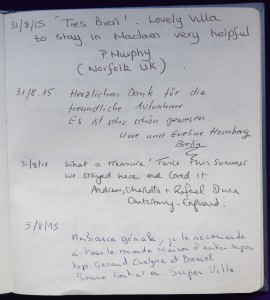 31/8/15 'Très Bien'! Lovely Villa
to stay in Madam very helpful
P Murphy
(Norfolk UK)
31/8.15 Herzlichen Dank für die
freundliche Aufnahme.
Es ist sehr schön gewesen.
Uwe und Eveline Homberg
Berlin
31/8/15 What a treasure! Twice this summer
we stayed here and loved it
Andrew, Charlotte + Rafael
Canterbury, England.
5/8/15
Ambiance géniale, je le recommande
à tous le monde Maison d'
top Gerard Evelyne et Daniel.
Bonne Super Ville.